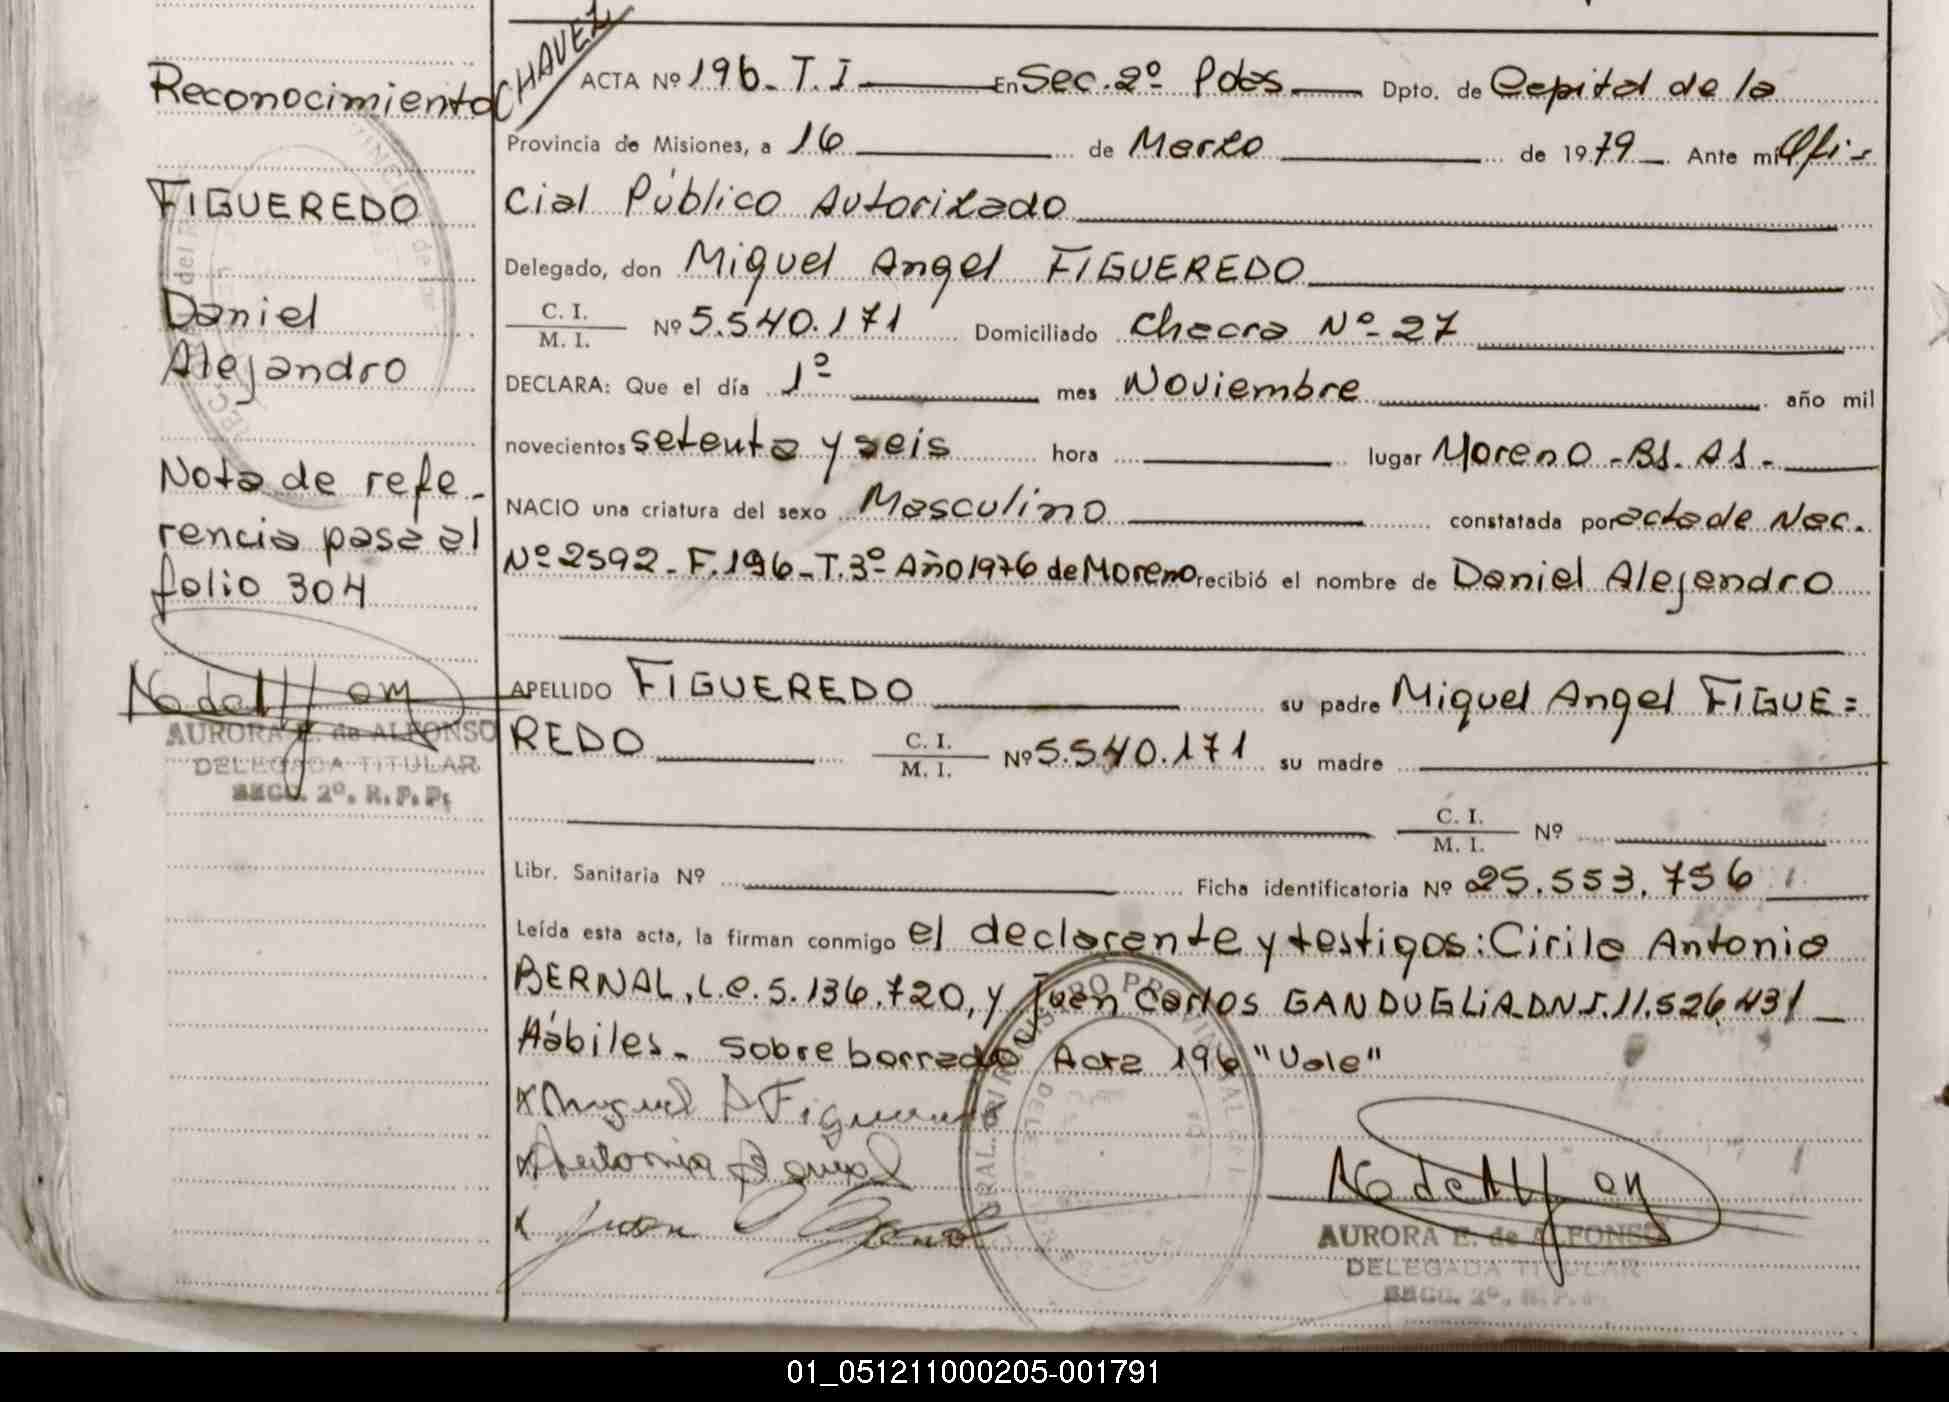 CHAVEZ
Reconocimiento
FIGUEREDO
Daniel
Alejandro
Nota de refe-
rencia pasa al
folio 304
AURORA E. de ALFONSO
DELEGADA TITULAR
SECC. 2º. R.P.P.
ACTA Nº 196 - T. I En Sec. 2º Pdas Dpto. de Capital de la
Provincia de Misiones, a 16 de Marzo de 1979 Ante mi Ofi-
cial Público Autorizado
Delegado, don Miguel Angel FIGUEREDO
C. I.
M. I. Nº 5.540.171 Domiciliado Chacra Nº 27
DECLARA: Que el día 1º mes Noviembre año mil
novecientos setenta y seis hora lugar Moreno - Bs. As -
NACIO una criatura del sexo Masculino constatada por acta de Nac.
Nº 2592 - F. 196 - T. 3º Año 1976 de Moreno recibió el nombre de Daniel Alejandro
APELLIDO FIGUEREDO su padre Miguel Angel FIGUE=
REDO C. I.
M. I. Nº 5.540.171 su madre
C. I.
M. I. Nº
Libr. Sanitaria Nº Ficha identificatoria Nº 25.553.756
Leída esta acta, la firman conmigo el declarante y testigos: Cirilo Antonio
BERNAL, L.e. 5.136.720, y Juan Carlos GANDUGLIA DNI. 11.526.431
Hábiles - sobre borrado Acta 196 "Vale"
x Miguel A Figueredo
x Antonio Bernal
x Juan C
AURORA E. de ALFONSO
DELEGADA TITULAR
SECC. 2º. R.P.P.
01_051211000205-001791